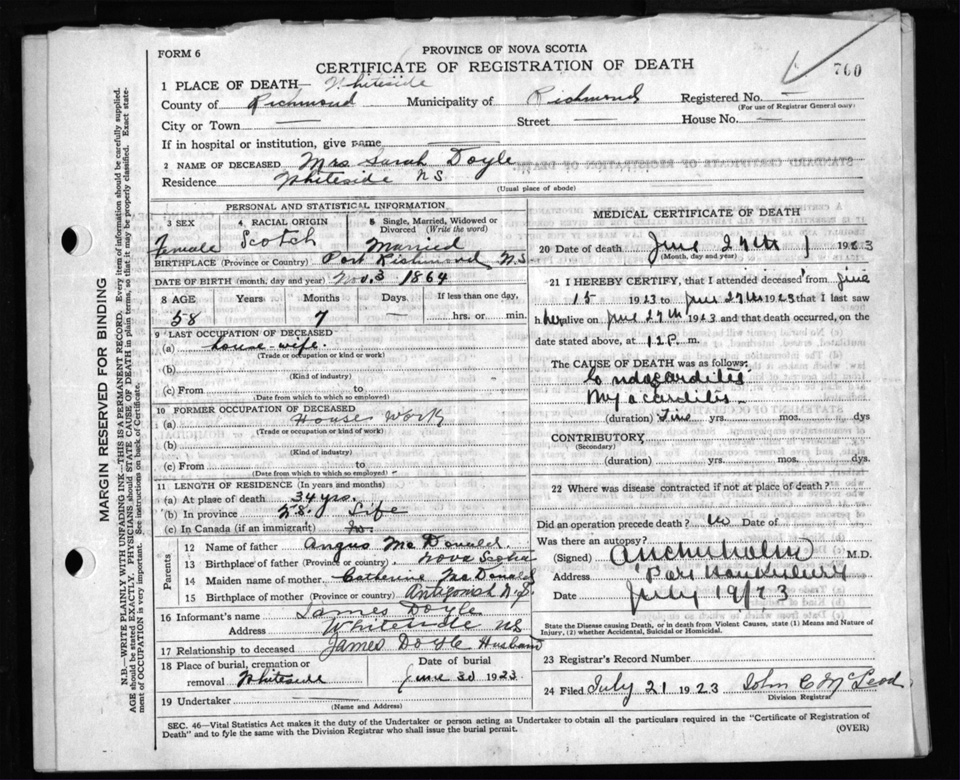 FORM 6
PROVINCE OF NOVA SCOTIA
CERTIFICATE OF REGISTRATION OF DEATH
760
1 PLACE OF DEATH— Whiteside
County of Richmond Municipality of Richmond Registered No. —
(For use of Registrar General only)
City or Town — Street — House No. —
If in hospital or institution, give name —
2 NAME OF DECEASED Mrs. Sarah Doyle
Residence Whiteside N.S.
(Usual place of abode)
PERSONAL AND STATISTICAL INFORMATION
3 SEX 4. RACIAL ORIGIN 5 Single, Married, Widowed or Divorced (Write the word)
Female Scotch Married
BIRTHPLACE (Province or Country) Port Richmond N.S
DATE OF BIRTH (month, day and year) Nov. 3 1864
8 AGE Years Months Days If less than one day,
58 7 — hrs. or min.
9 LAST OCCUPATION OF DECEASED
(a) house-wife.
(Trade or occupation or kind of work)
(b)
(Kind of industry)
(c) From to
(Date from which to which employed)
10 FORMER OCCUPATION OF DECEASED
(a) House work
(Trade or occupation or kind of work)
(b)
(Kind of industry)
(c) From to
(Date from which to which employed)
11 LENGTH OF RESIDENCE (In years and months)
(a) At place of death 34 yrs.
(b) In province 58. Life
(c) In Canada (if an immigrant)
Parents
12 Name of father Angus McDonald
13 Birthplace of father (Province or country) Nova Scotia
14 Maiden name of mother Catherine McDonald
15 Birthplace of mother (Province or country) Antigonish N.S.
16 Informant's name James Doyle
Address Whiteside NS
17 Relationship to deceased James Doyle Husband
18 Place of burial, cremation or removal Whiteside
Date of burial June 30 1923
19 Undertaker
(Name and Address)
MEDICAL CERTIFICATE OF DEATH
20 Date of death June 27th 1923
(Month, day and year)
21 I HEREBY CERTIFY, that I attended deceased from June
15 1923 to June 27th 1923 that I last saw
her alive on June 27th 1923 and that death occurred, on the
date stated above, at 12 P. m.
The CAUSE OF DEATH was as follows:
Endocarditis
Myocarditis
(duration) yrs. mos. dys
CONTRIBUTORY
(Secondary)
(duration) yrs. mos. dys.
22 Where was disease contracted if not at place of death?
Did an operation precede death? No Date of
Was there an autopsy?
(Signed) M.D.
Address Port Hawkesbury
Date July 19/23
State the Disease causing Death, or in death from Violent Causes, state (1) Means and Nature of Injury, (2) whether Accidental, Suicidal or Homicidal.
23 Registrar's Record Number
24 Filed July 21 1923 John C McLeod
Division Registrar
SEC. 46—Vital Statistics Act makes it the duty of the Undertaker or person acting as Undertaker to obtain all the particulars required in the "Certificate of Registration of
Death" and to fyle the same with the Division Registrar who shall issue the burial permit.
(OVER)
MARGIN RESERVED FOR BINDING
N.B.—WRITE PLAINLY WITH UNFADING INK—THIS IS A PERMANENT RECORD. Every item of information should be carefully supplied.
AGE should be stated EXACTLY. PHYSICIANS should STATE CAUSE OF DEATH in plain terms, so that it may be properly classified. Exact state-
ment of OCCUPATION is very important. See instructions on back of Certificate.